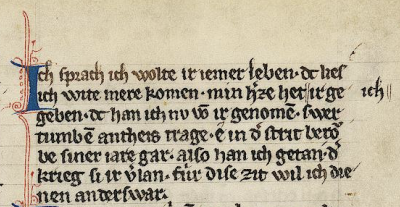 Ich sprach ich wolte ir iemer leben · dc lies
ich wite mere komen · min h̾ze het ir ge ich
geben · dc han ich nv võ ir genomẽ · swer
tumben antheis trage · e in d̾ strit bero
be siner iare gar · also han ich getan · d̾
krieg si ir v̾lan · fúr dise zit wil ich die
nen anderswar ·